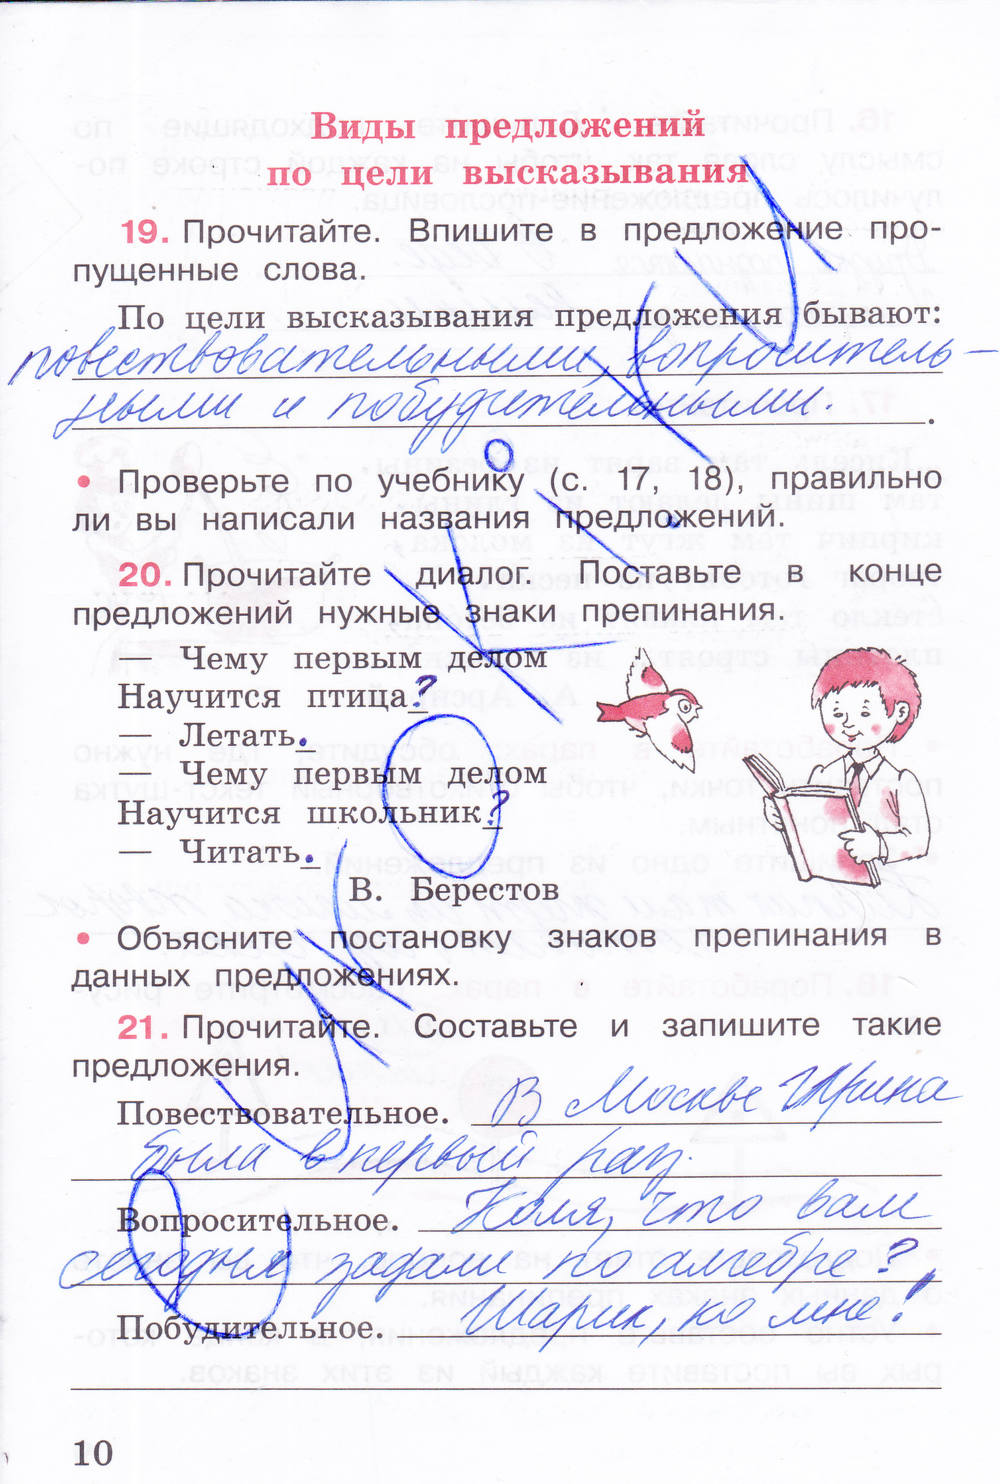 Виды предложений
по цели высказывания
19. Прочитайте. Впишите в предложение про-
пущенные слова.
По цели высказывания предложения бывают:
повествовательными, вопроситель-
ными и побудительными.
.
• Проверьте по учебнику (с. 17, 18), правильно
ли вы написали названия предложений.
20. Прочитайте диалог. Поставьте в конце
предложений нужные знаки препинания.
Чему первым делом
Научится птица?
— Летать.
— Чему первым делом
Научится школьник?
— Читать.
В. Берестов
• Объясните постановку знаков препинания в
данных предложениях.
21. Прочитайте. Составьте и запишите такие
предложения.
Повествовательное. В Москве Ирина
была впервый раз.
Вопросительное. Коля, что вам
сегодня задали по алгебре?
Побудительное. Шарик, ко мне!
10